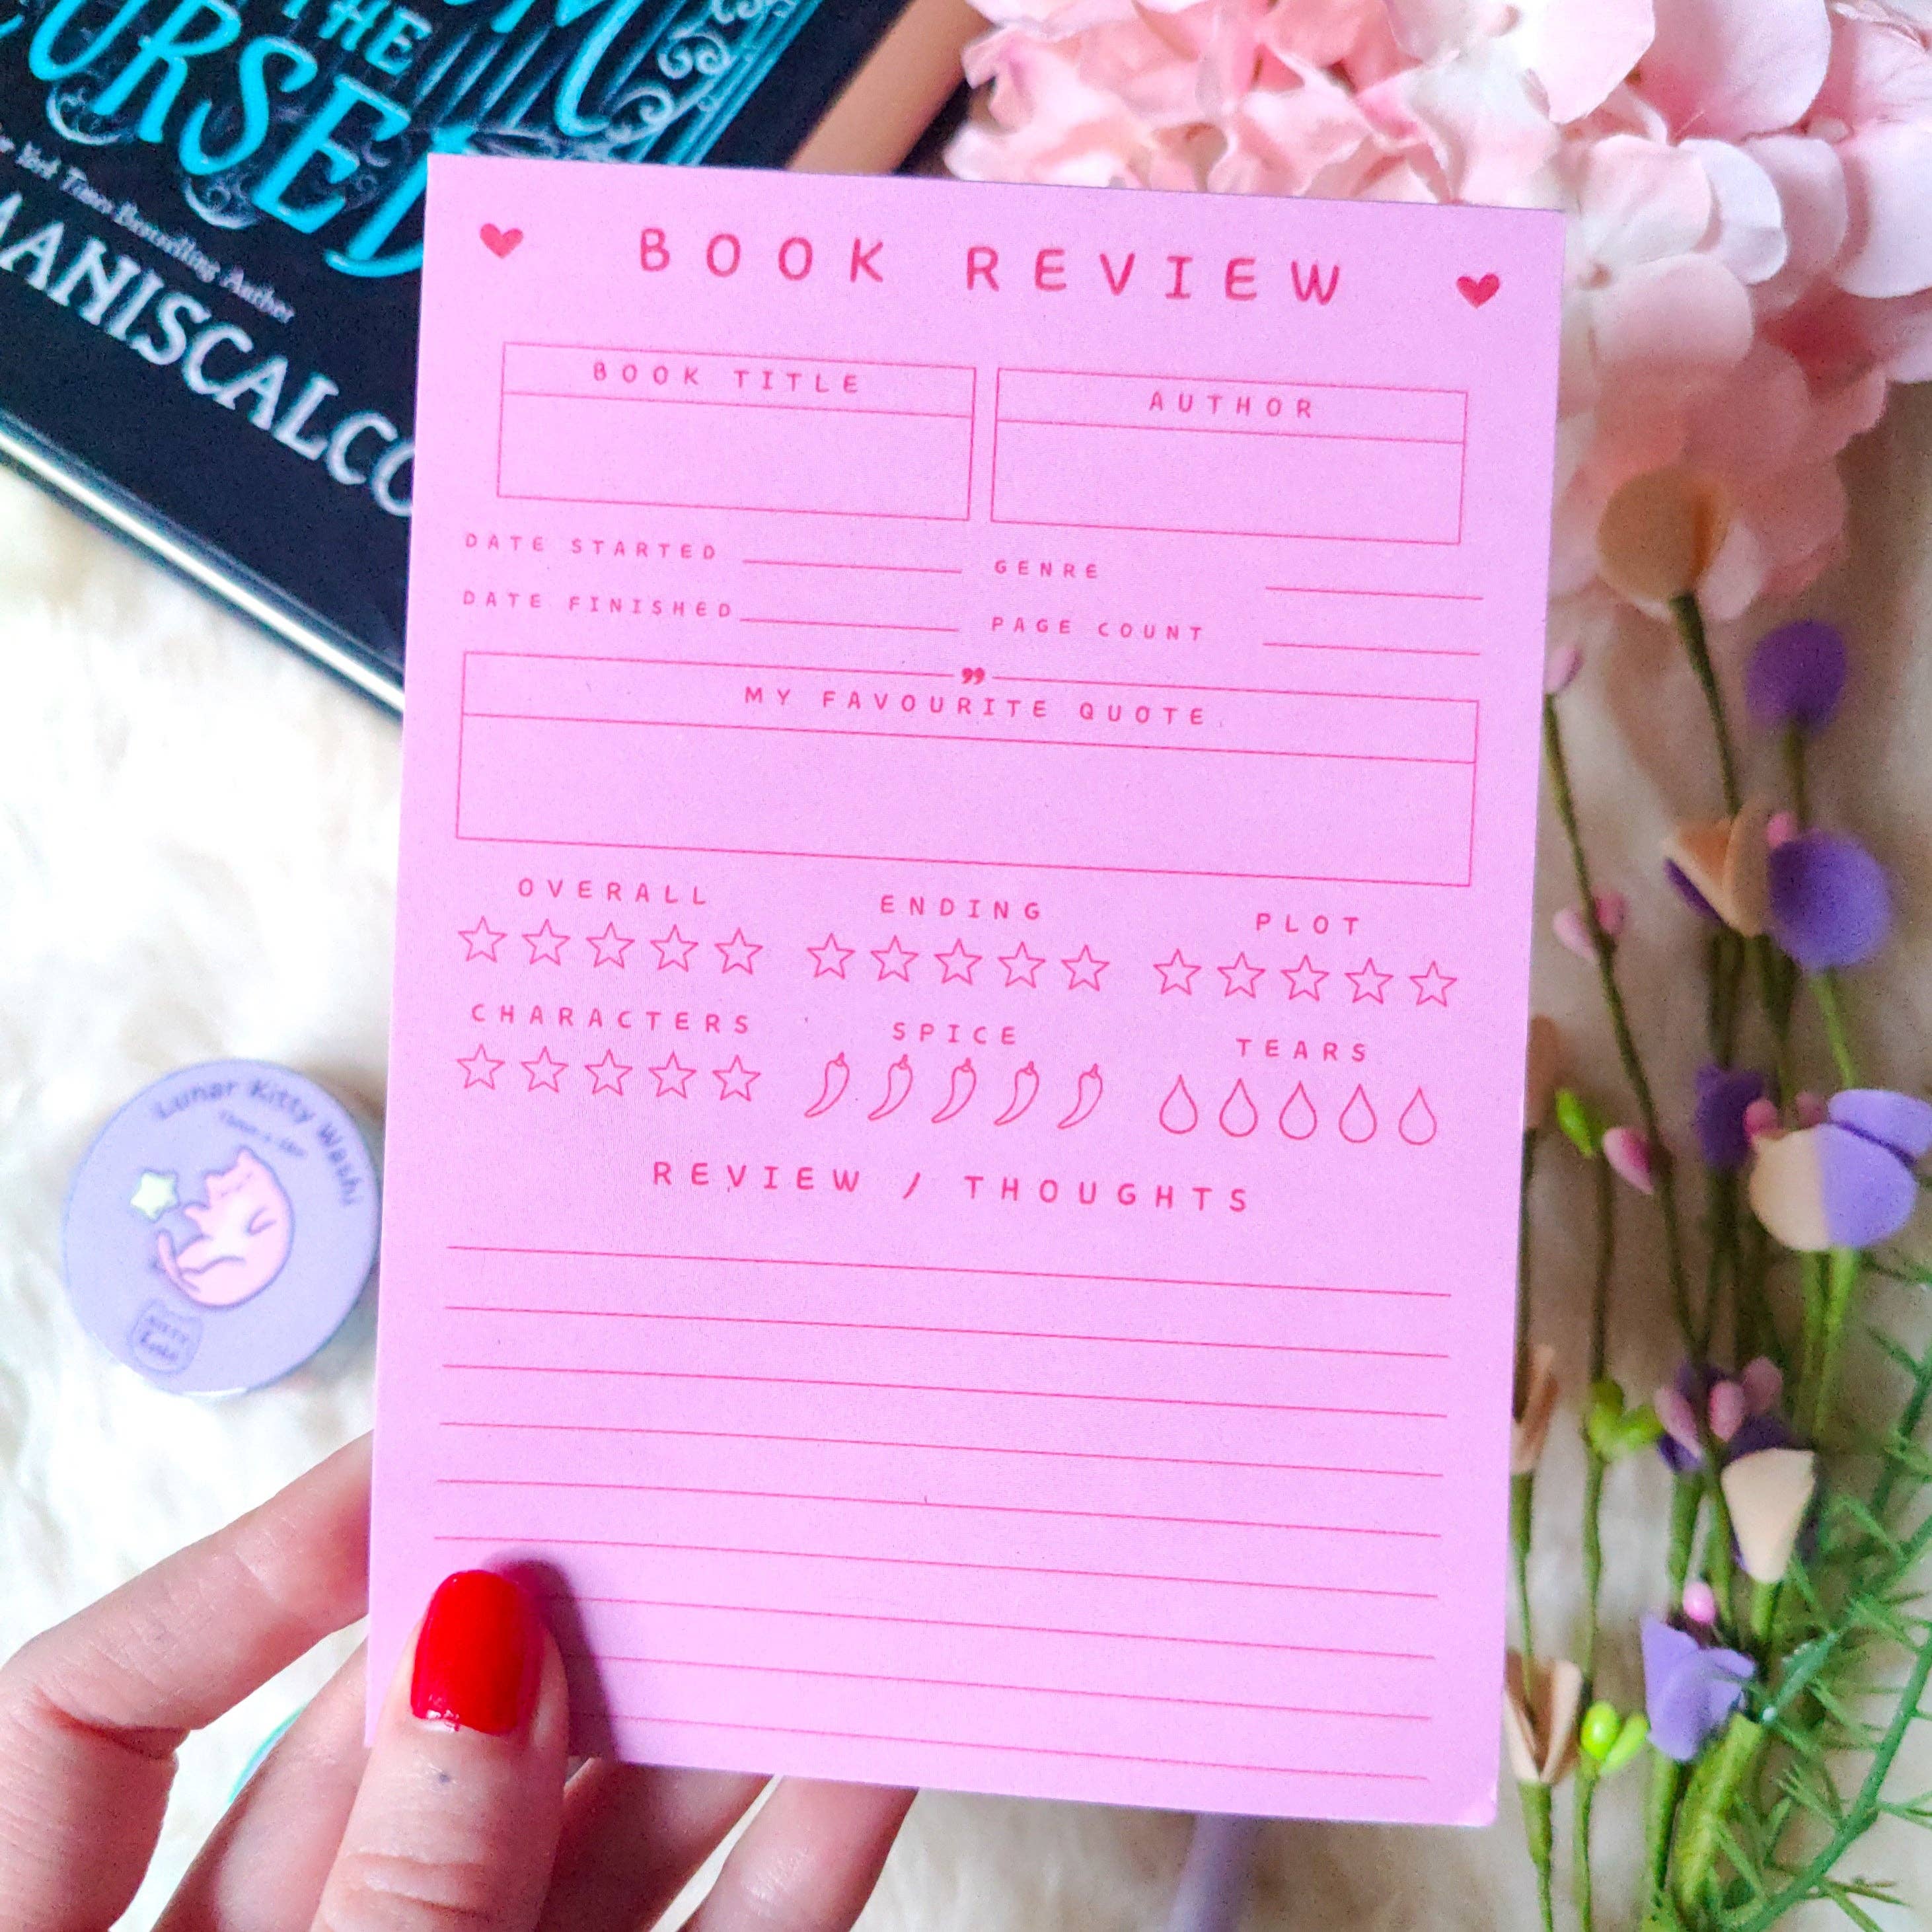 THE
CURSED
New York Times Bestselling Author
MANISCALCO
BOOK REVIEW
BOOK TITLE
AUTHOR
DATE STARTED
GENRE
DATE FINISHED
PAGE COUNT
”
MY FAVOURITE QUOTE
OVERALL
ENDING
PLOT
CHARACTERS
SPICE
TEARS
REVIEW / THOUGHTS
Lunar Kitty Washi